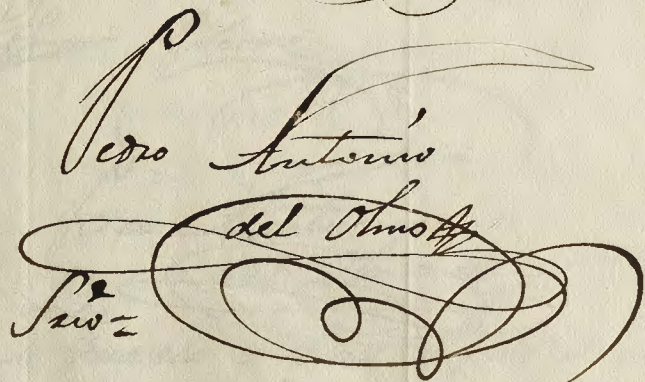 Pedro Antonio
del Olmo
Srio=